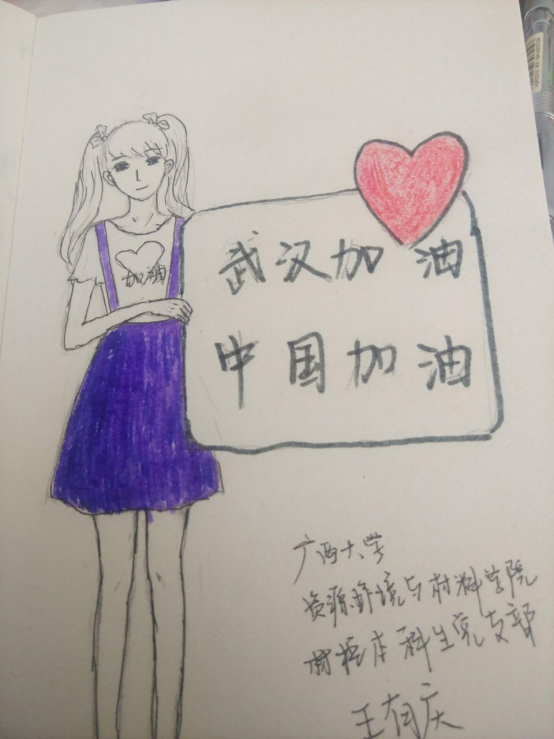 加油
武汉加油
中国加油
广西大学
资源环境与材料学院
材控本科生党支部
王有庆